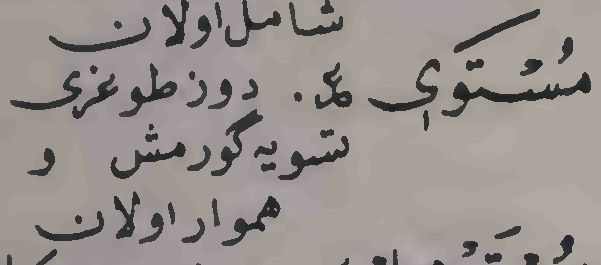 شامل اولان
مُسْتَوِي . دوز طوغری
تسویه گورمش و
هموار اولان